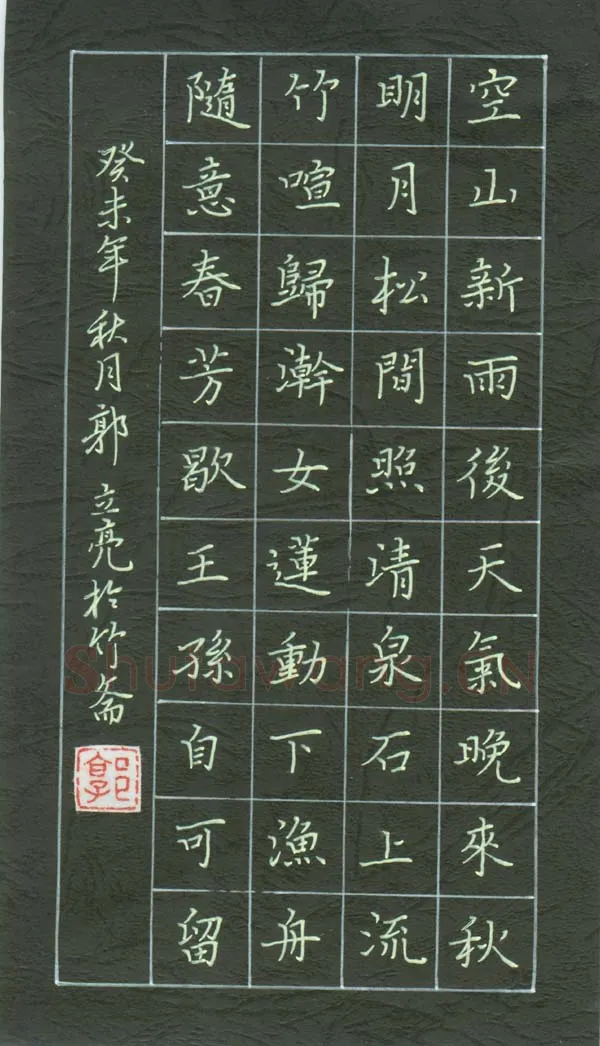 空山新雨後天氣晚來秋
明月松間照清泉石上流
竹喧歸澣女蓮動下漁舟
隨意春芳歇王孫自可留
癸未年秋月郭立亮於竹斋
郭
Shufawang.CN